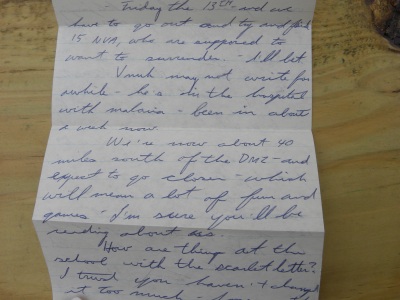 - Friday the 13TH and we
have to go out and try and find
15 NVA, who are supposed to
want to surrender. - I'll bet
Vnuk may not write for
awhile - he's in the hospital
with malaria - been in about
a week now.
We're now about 40
miles south of the DMZ - and
expect to go closer - which
will mean a lot of fun and
games. I'm sure you'll be
reading about us.
How are things at the
school with the scarlet letter?
I trust you haven't changed
it too much -